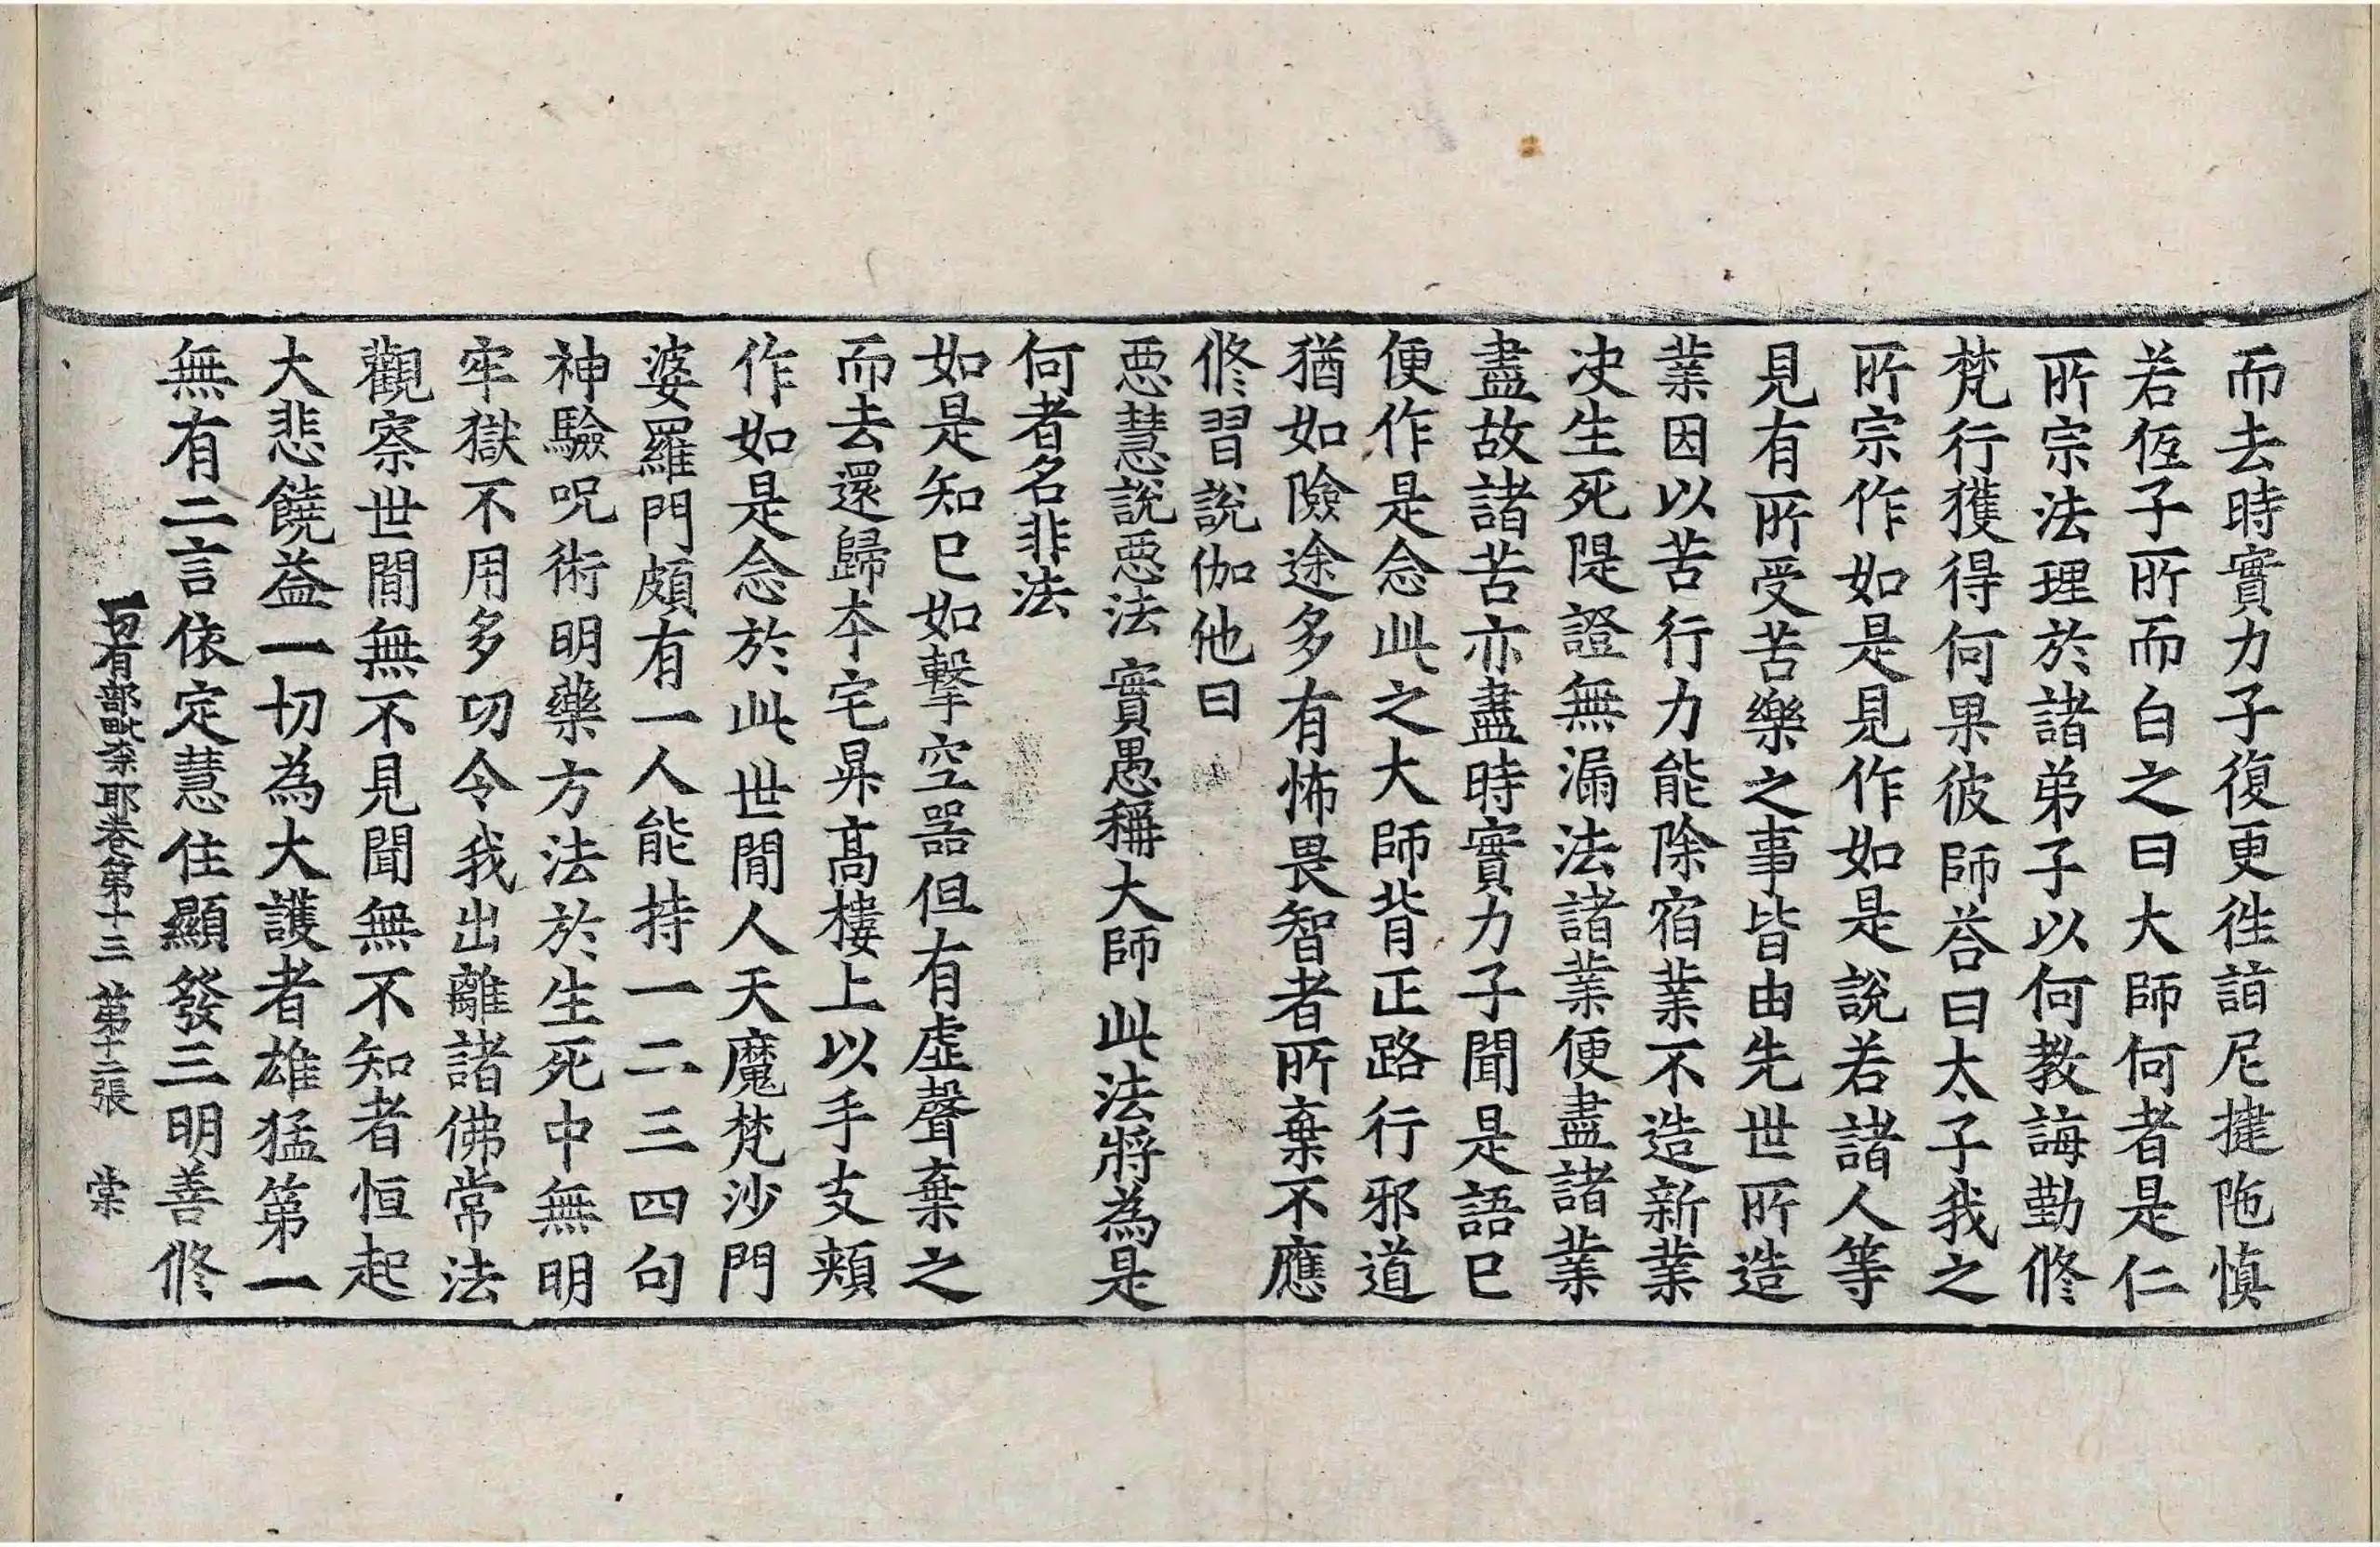 而去時實力子復更徃詣尼揵陁慎
若侄子所而白之曰大師何者是仁
所宗法理於諸弟子以何教誨勤修
梵行獲得何果彼師荅曰太子我之
所宗作如是見作如是說若諸人等
見有所受苦樂之事皆由先世所造
業因以苦行力能除宿業不造新業
决生死隄證無漏法諸業便盡諸業
盡故諸苦亦盡時實力子聞是語已
便作是念此之大師背正路行邪道
猶如險途多有怖畏智者所棄不應
修習說伽他曰
惡慧說惡法 實愚稱大師 此法將為是
何者名非法
如是知已如擊空器但有虛聲棄之
而去還歸本宅昇高樓上以手支頰
作如是念於此世間人天魔梵沙門
婆羅門頗有一人能持一二三四句
神驗呪術明藥方法於生死中無明
牢獄不用多功令我出離諸佛常法
觀察世間無不見聞無不知者恒起
大悲饒益一切為大護者雄猛第一
無有二言依定慧住顯發三明善修
一切有部毗奈耶卷第十三 第十二張 棠